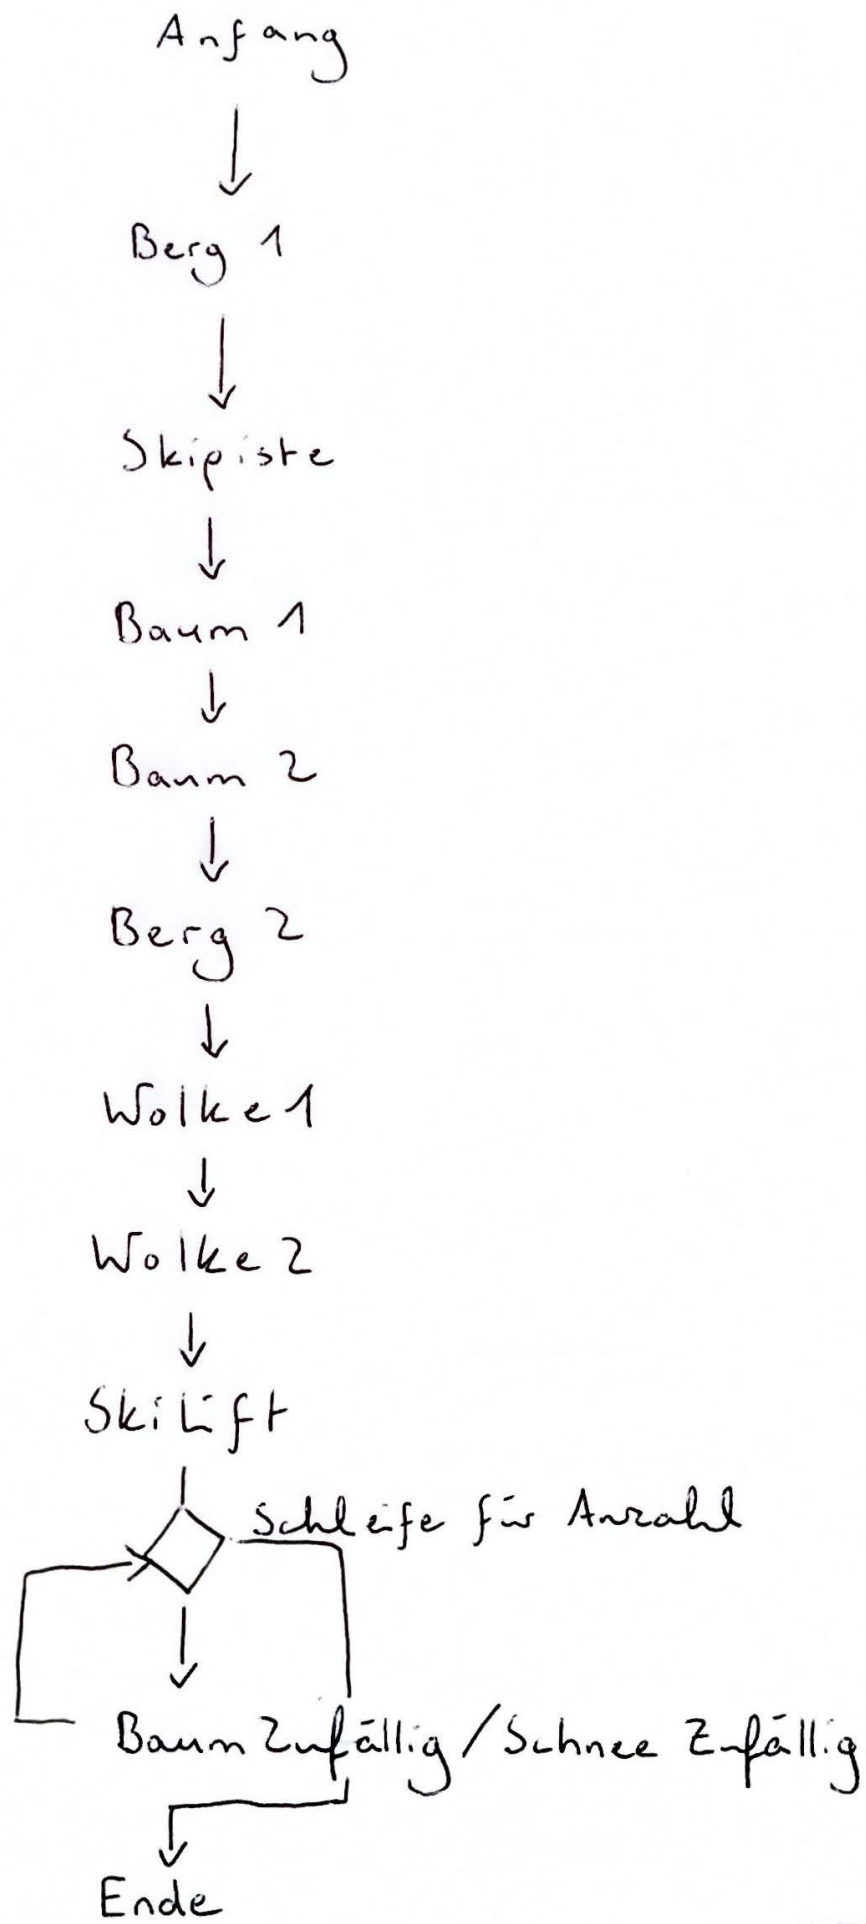 Anfang
Berg 1
Skipiste
Baum 1
Baum 2
Berg 2
Wolke 1
Wolke 2
SkiLift
Schleife für Anzahl
Baum Zufällig / Schnee Zufällig
Ende